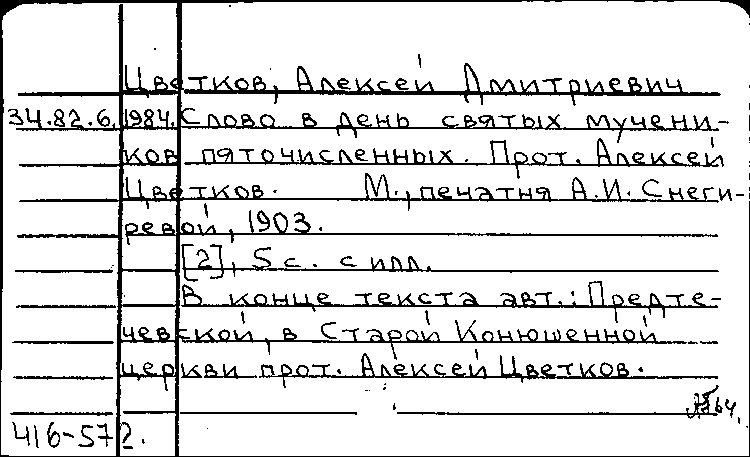 Цветков, Алексей Дмитриевич
34.82.6. 1984. Слово в день святых мучени-
ков пяточисленных. Прот. Алексей
Цветков. М., печатня А.И. Снеги-
ревой, 1903.
[2], 5 с. с илл.
В конце текста авт.: Предте-
чевской, в Старой Конюшенной
церкви прот. Алексей Цветков.
416-572.